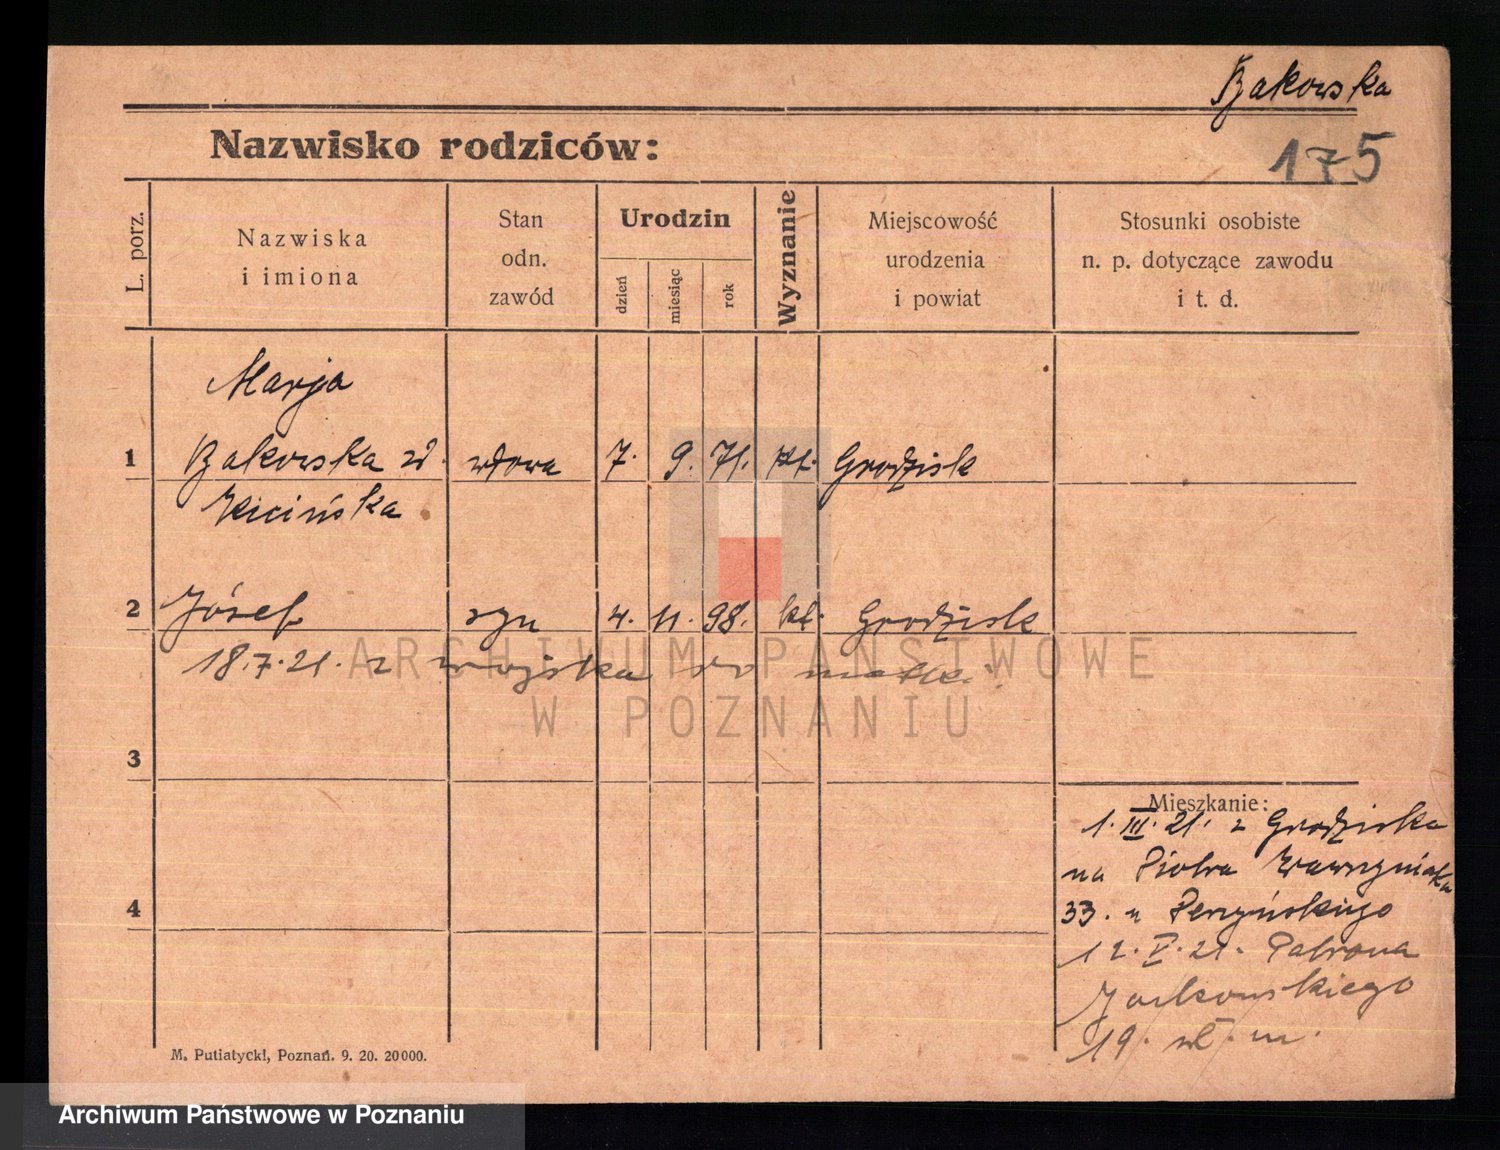 Bąkowska
175
Nazwisko rodziców:
L. porz.
Nazwiska
i imiona
Stan
odn.
zawód
Urodzin
dzień
miesiąc
rok
Wyznanie
Miejscowość
urodzenia
i powiat
Stosunki osobiste
n. p. dotyczące zawodu
i t. d.
Marja
1 Bąkowska wdowa 7. 9. 71. kt. Grodzisk
Kicińska
2 Józef syn 4. 11. 98. kt. Grodzisk
18.7.21. z wojska do matki.
3
4
Mieszkanie:
1. III. 21. z Grodziska
na Piotra Wawrzyniaka
33. u Perzyńskiego
12. V. 21. Patrona
Jackowskiego
19.
M. Putiatycki, Poznań. 9. 20. 20000.
ARCHIWUM PAŃSTWOWE
W POZNANIU
Archiwum Państwowe w Poznaniu